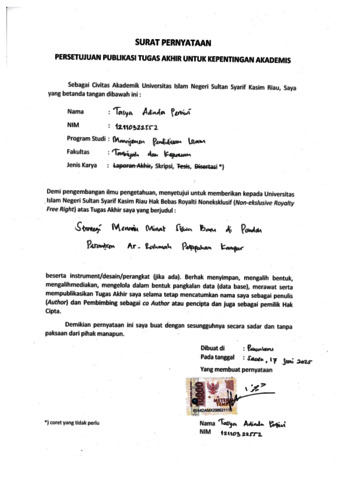 SURAT PERNYATAAN
PERSETUJUAN PUBLIKASI TUGAS AKHIR UNTUK KEPENTINGAN AKADEMIS
Sebagai Civitas Akademik Universitas Islam Negeri Sultan Syarif Kasim Riau, Saya
yang betanda tangan dibawah ini :
Nama : Tasya Adinda Pertiwi
NIM : 12110322552
Program Studi : Manajemen Pendidikan Islam
Fakultas : Tarbiyah dan Keguruan
Jenis Karya : Laporan Akhir, Skripsi, Tesis, Disertasi *)
Demi pengembangan ilmu pengetahuan, menyetujui untuk memberikan kepada Universitas
Islam Negeri Sultan Syarif Kasim Riau Hak Bebas Royalti Noneksklusif (Non-ekslusive Royalty
Free Right) atas Tugas Akhir saya yang berjudul :
Strategi Minat Baru di Pondok
Pesantren Ar-Rahmah Kampar
beserta instrument/desain/perangkat (jika ada). Berhak menyimpan, mengalih bentuk,
mengalihmediakan, mengelola dalam bentuk pangkalan data (data base), merawat serta
mempublikasikan Tugas Akhir saya selama tetap mencatumkan nama saya sebagai penulis
(Author) dan Pembimbing sebagai co Author atau pencipta dan juga sebagai pemilik Hak
Cipta.
Demikian pernyataan ini saya buat dengan sesungguhnya secara sadar dan tanpa
paksaan dari pihak manapun.
Dibuat di : Pekanbaru
Pada tanggal : 17 Juni 2025
Yang membuat pernyataan
*) coret yang tidak perlu
Nama Tasya Adinda Pertiwi
NIM 12110322552